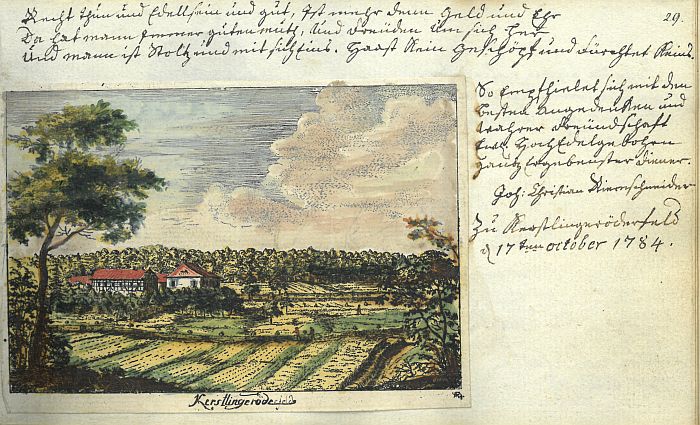 29.
Recht thun und Edelsein und gut, Ist mehr denn Geld und Ehr
Da hat mann Immer guten muth, Und Freuden Um sich Her
Und mann ist Stoltz und mit sich Eins. Haast Kein Geschöpf und Fürchtet Keins.
So Empfhielet sich mit den
besten Angedenken und
wahrer Freündschaft
Ew. HochEdelgebohren
gantz Ergebenster diener.
Joh: Christian Riemschneider
Zu Kerstlingeröderfeld
d 17ten october 1784.
Kerstlingeröderfeld